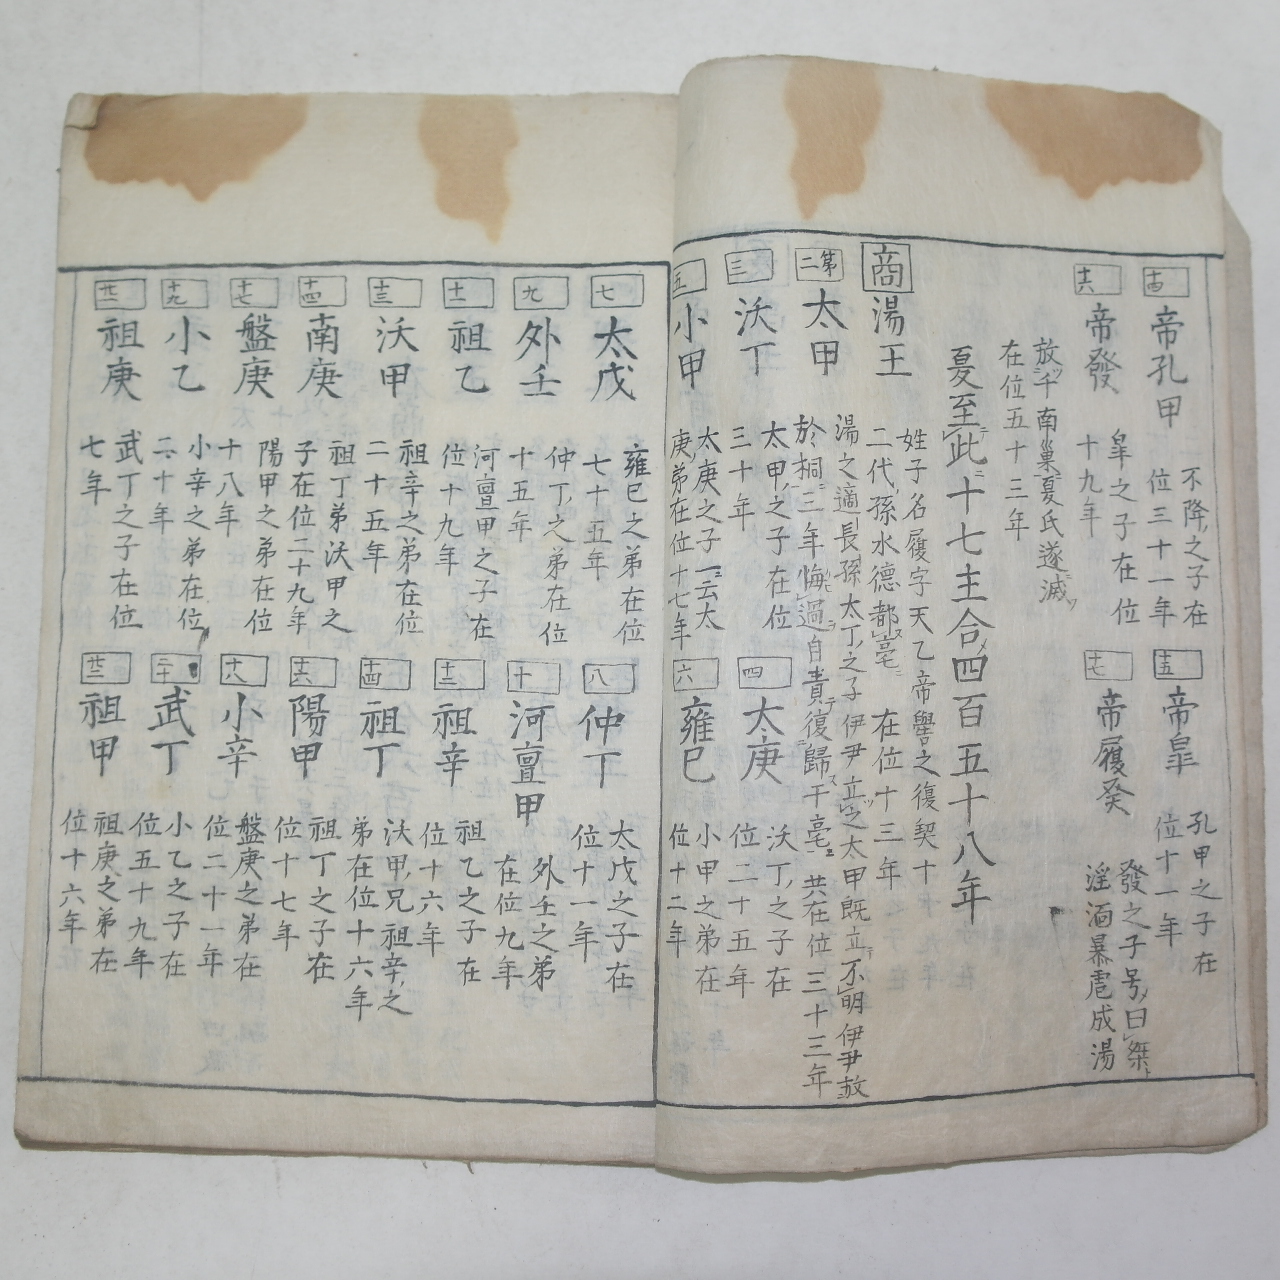 十四
帝孔甲
不降之子在
位三十一年
十五
帝皐
孔甲之子在
位十一年
十六
帝發
皐之子在位
十九年
十七
帝履癸
發之子号曰桀
淫湎暴虐成湯
放于南巢夏氏遂滅
在位五十三年
夏至此十七主合四百五十八年
商
湯王
姓子名履字天乙帝嚳之後契十
二代孫水德都亳 在位十三年
第二
太甲
湯之適長孫太丁之子伊尹立之太甲既立不明伊尹放
於桐三年悔過自責復歸于亳 共在位三十三年
三
沃丁
太甲之子在位
三十年
四
太庚
沃丁之子在
位二十五年
五
小甲
太庚之子一云太
庚弟在位十七年
六
雍巳
小甲之弟在
位十二年
七
太戊
雍巳之弟在位
七十五年
八
仲丁
太戊之子在
位十一年
九
外壬
仲丁之弟在位
十五年
十
河亶甲
外壬之弟
在位九年
十一
祖乙
河亶甲之子在
位十九年
十二
祖辛
祖乙之子在
位十六年
十三
沃甲
祖辛之弟在位
二十五年
十四
祖丁
沃甲兄祖辛之
弟在位十六年
十四
南庚
祖丁弟沃甲之
子在位二十九年
十六
陽甲
祖丁之子在
位十七年
十七
盤庚
陽甲之弟在位
十八年
十八
小辛
盤庚之弟在
位二十一年
十九
小乙
小辛之弟在位
二十年
二十
武丁
小乙之子在
位五十九年
廿一
祖庚
武丁之子在位
七年
廿二
祖甲
祖庚之弟在
位十六年